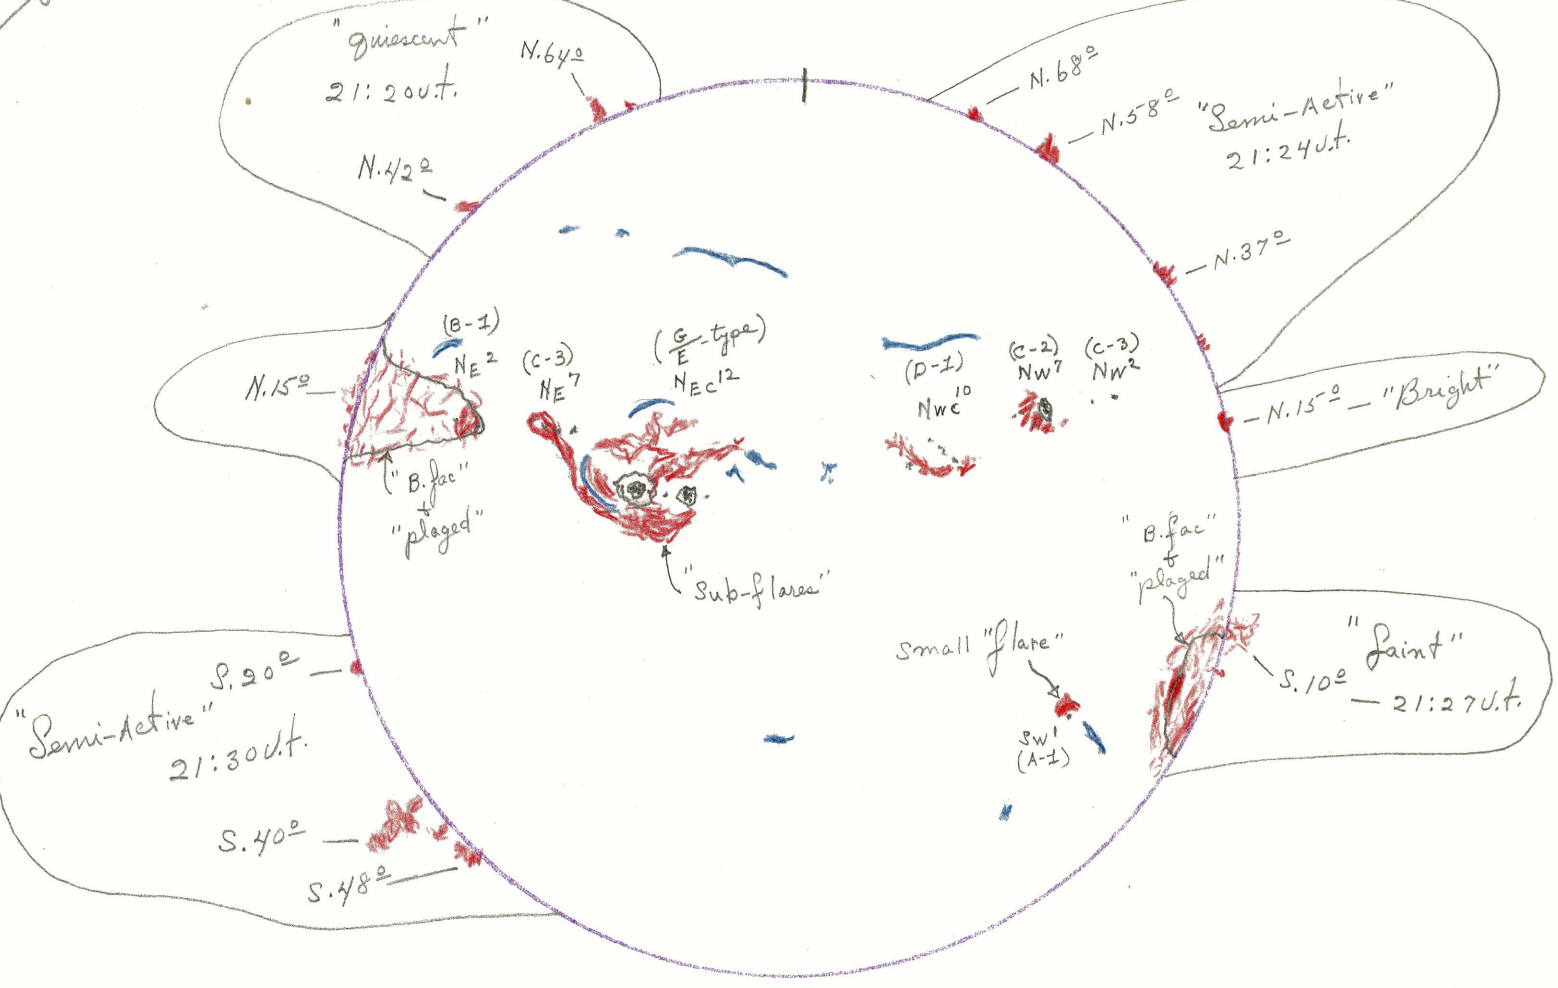 "quiescent"
21:20u.t.
N.64º
N.42º
N.68º
N.58º
"Semi-Active"
21:24u.t.
N.37º
(B-1)
NE²
(C-3)
NE⁷
(G/E-type)
NEC¹²
(D-1)
NWC¹⁰
(C-2)
NW⁷
(C-3)
NW²
N.15º
N.15º — "Bright"
"B.fac"
+
"plaged"
"Sub-flares"
"B.fac"
+
"plaged"
small "flare"
SW¹
(A-1)
"faint"
S.10º — 21:27u.t.
S.20º
"Semi-Active"
21:30u.t.
S.40º
S.48º